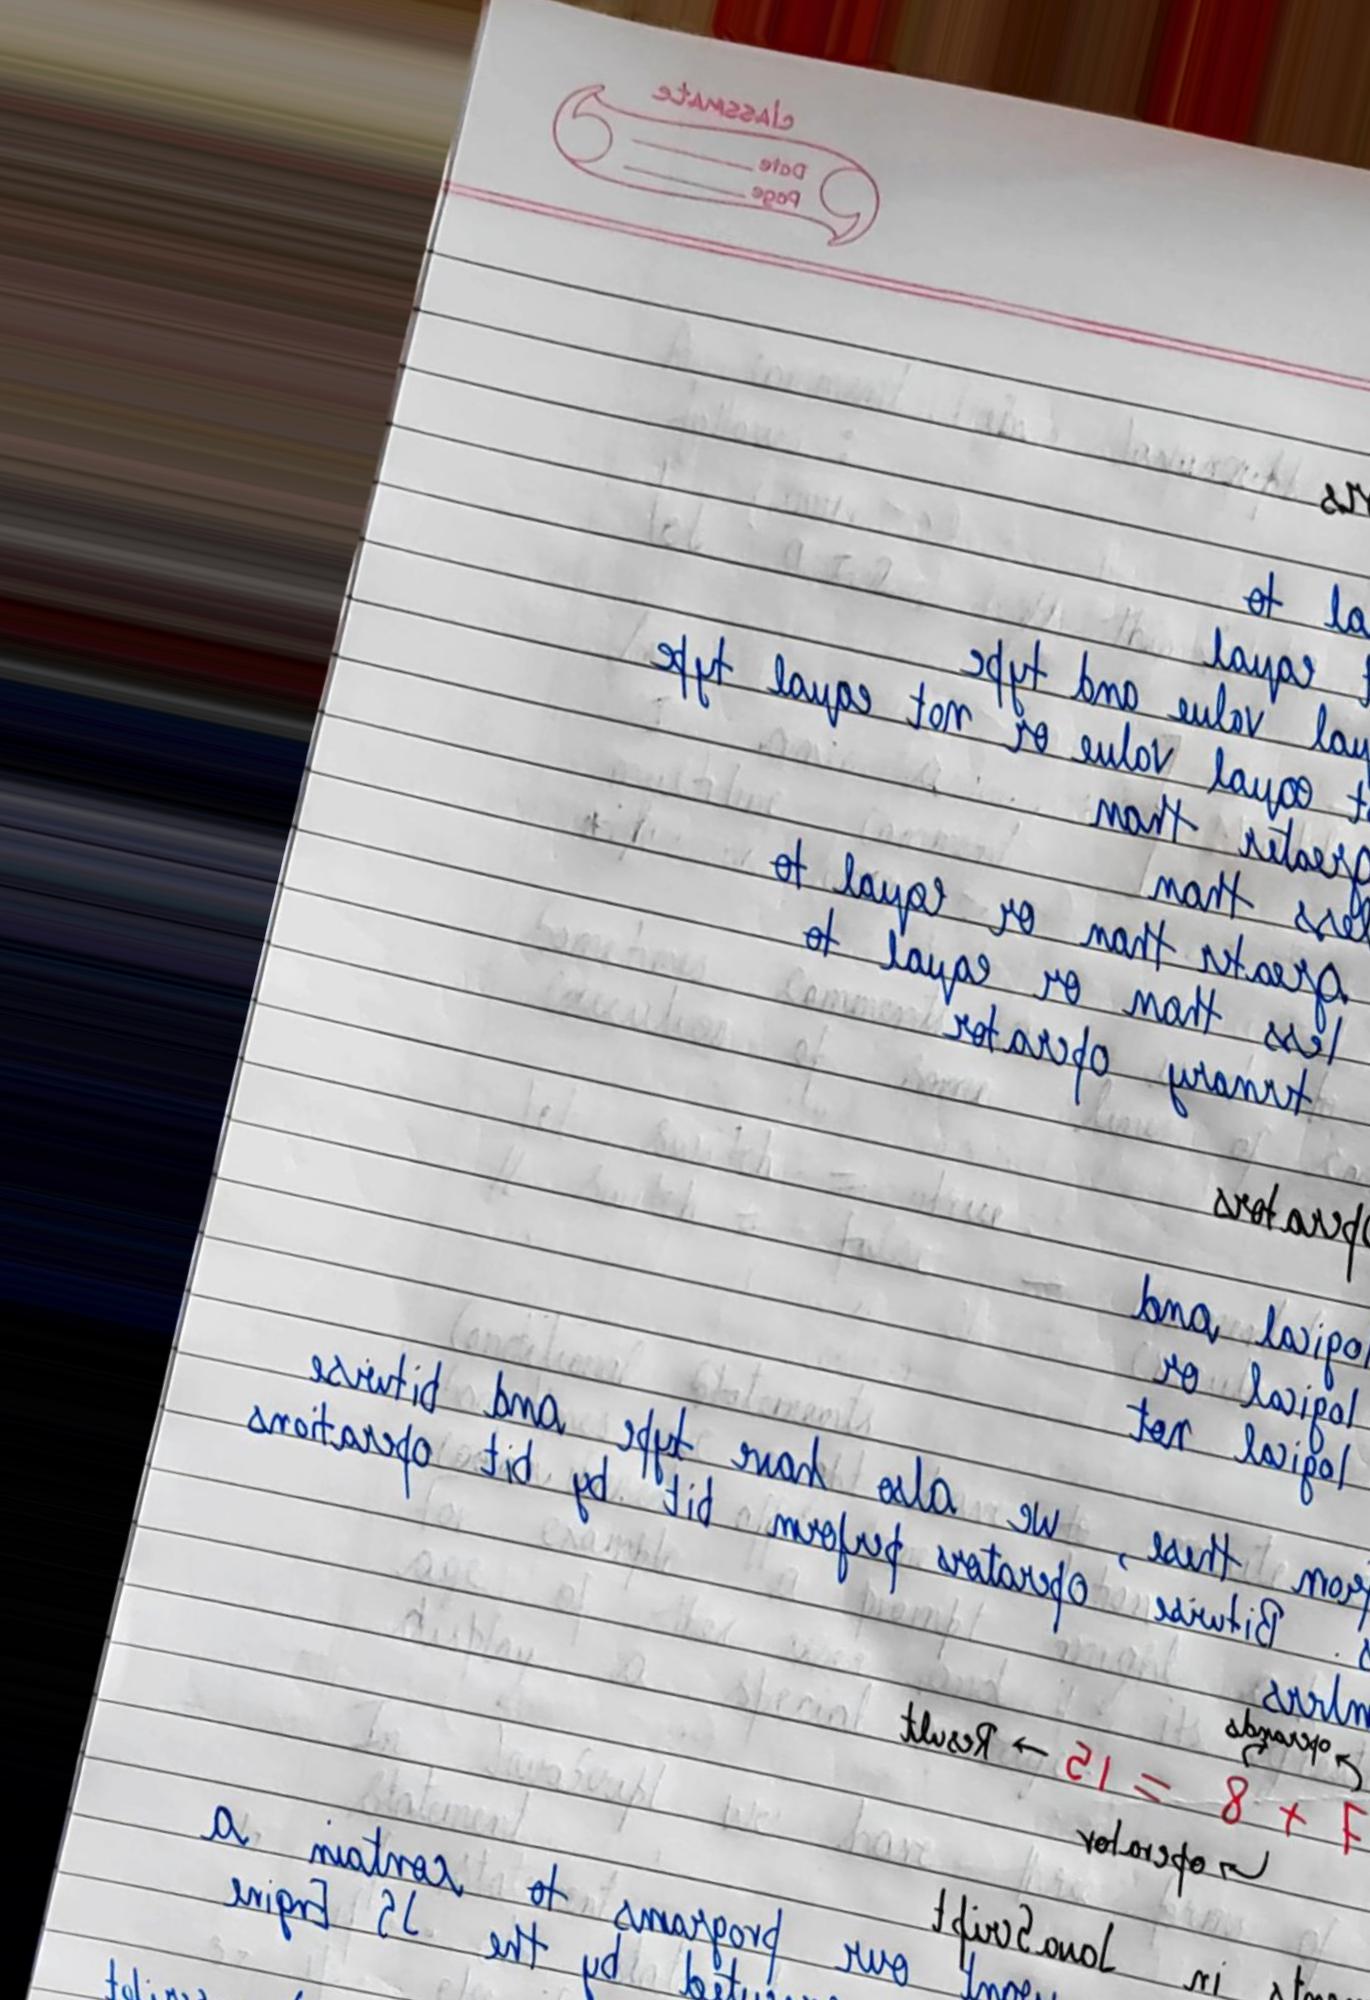 classmate
Date
Page
rs
al to
t equal
ual value and type
t eqal value or not equal type
greater than
less than
greater than or equal to
less than or equal to
trnary operator
perators
logical and
logical or
logical not
from these, we also have type and bitwise
s. Bitwise operators perform bit by bit operations
mbers
operands
7 + 8 = 15 → Result
operator
nts in JavaScript
want our programs to contain a
by the JS Engine